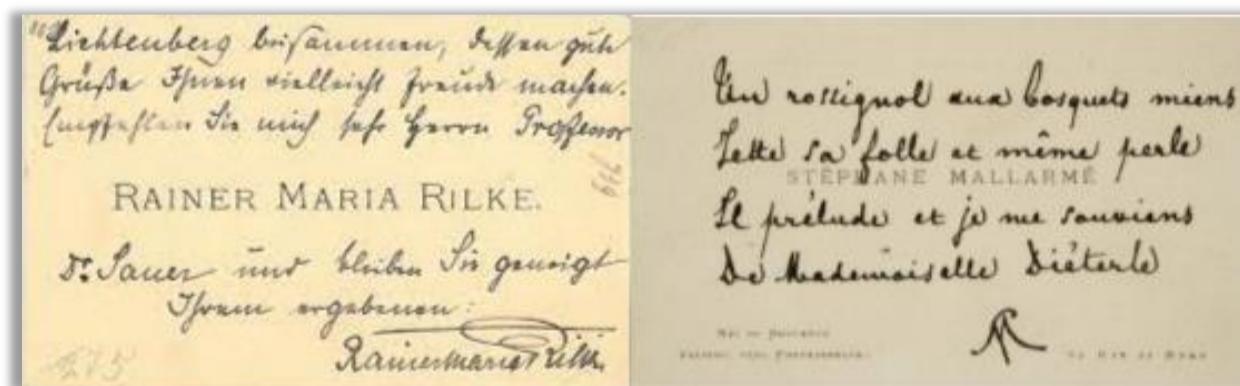 Lichtenberg beisammen, dessen gute
Grüße Ihnen vielleicht Freude machen.
Empfehlen Sie mich sehr Herrn Professor
RAINER MARIA RILKE.
Dr. Sauer und bleiben Sie geneigt
Ihrem ergebenen:
RainerMaria Rilke.
275
Un rossignol aux bosquets miens
Jette sa folle et même perle
STÉPHANE MALLARMÉ
Il prélude et je me souviens
De Mademoiselle Diéterle